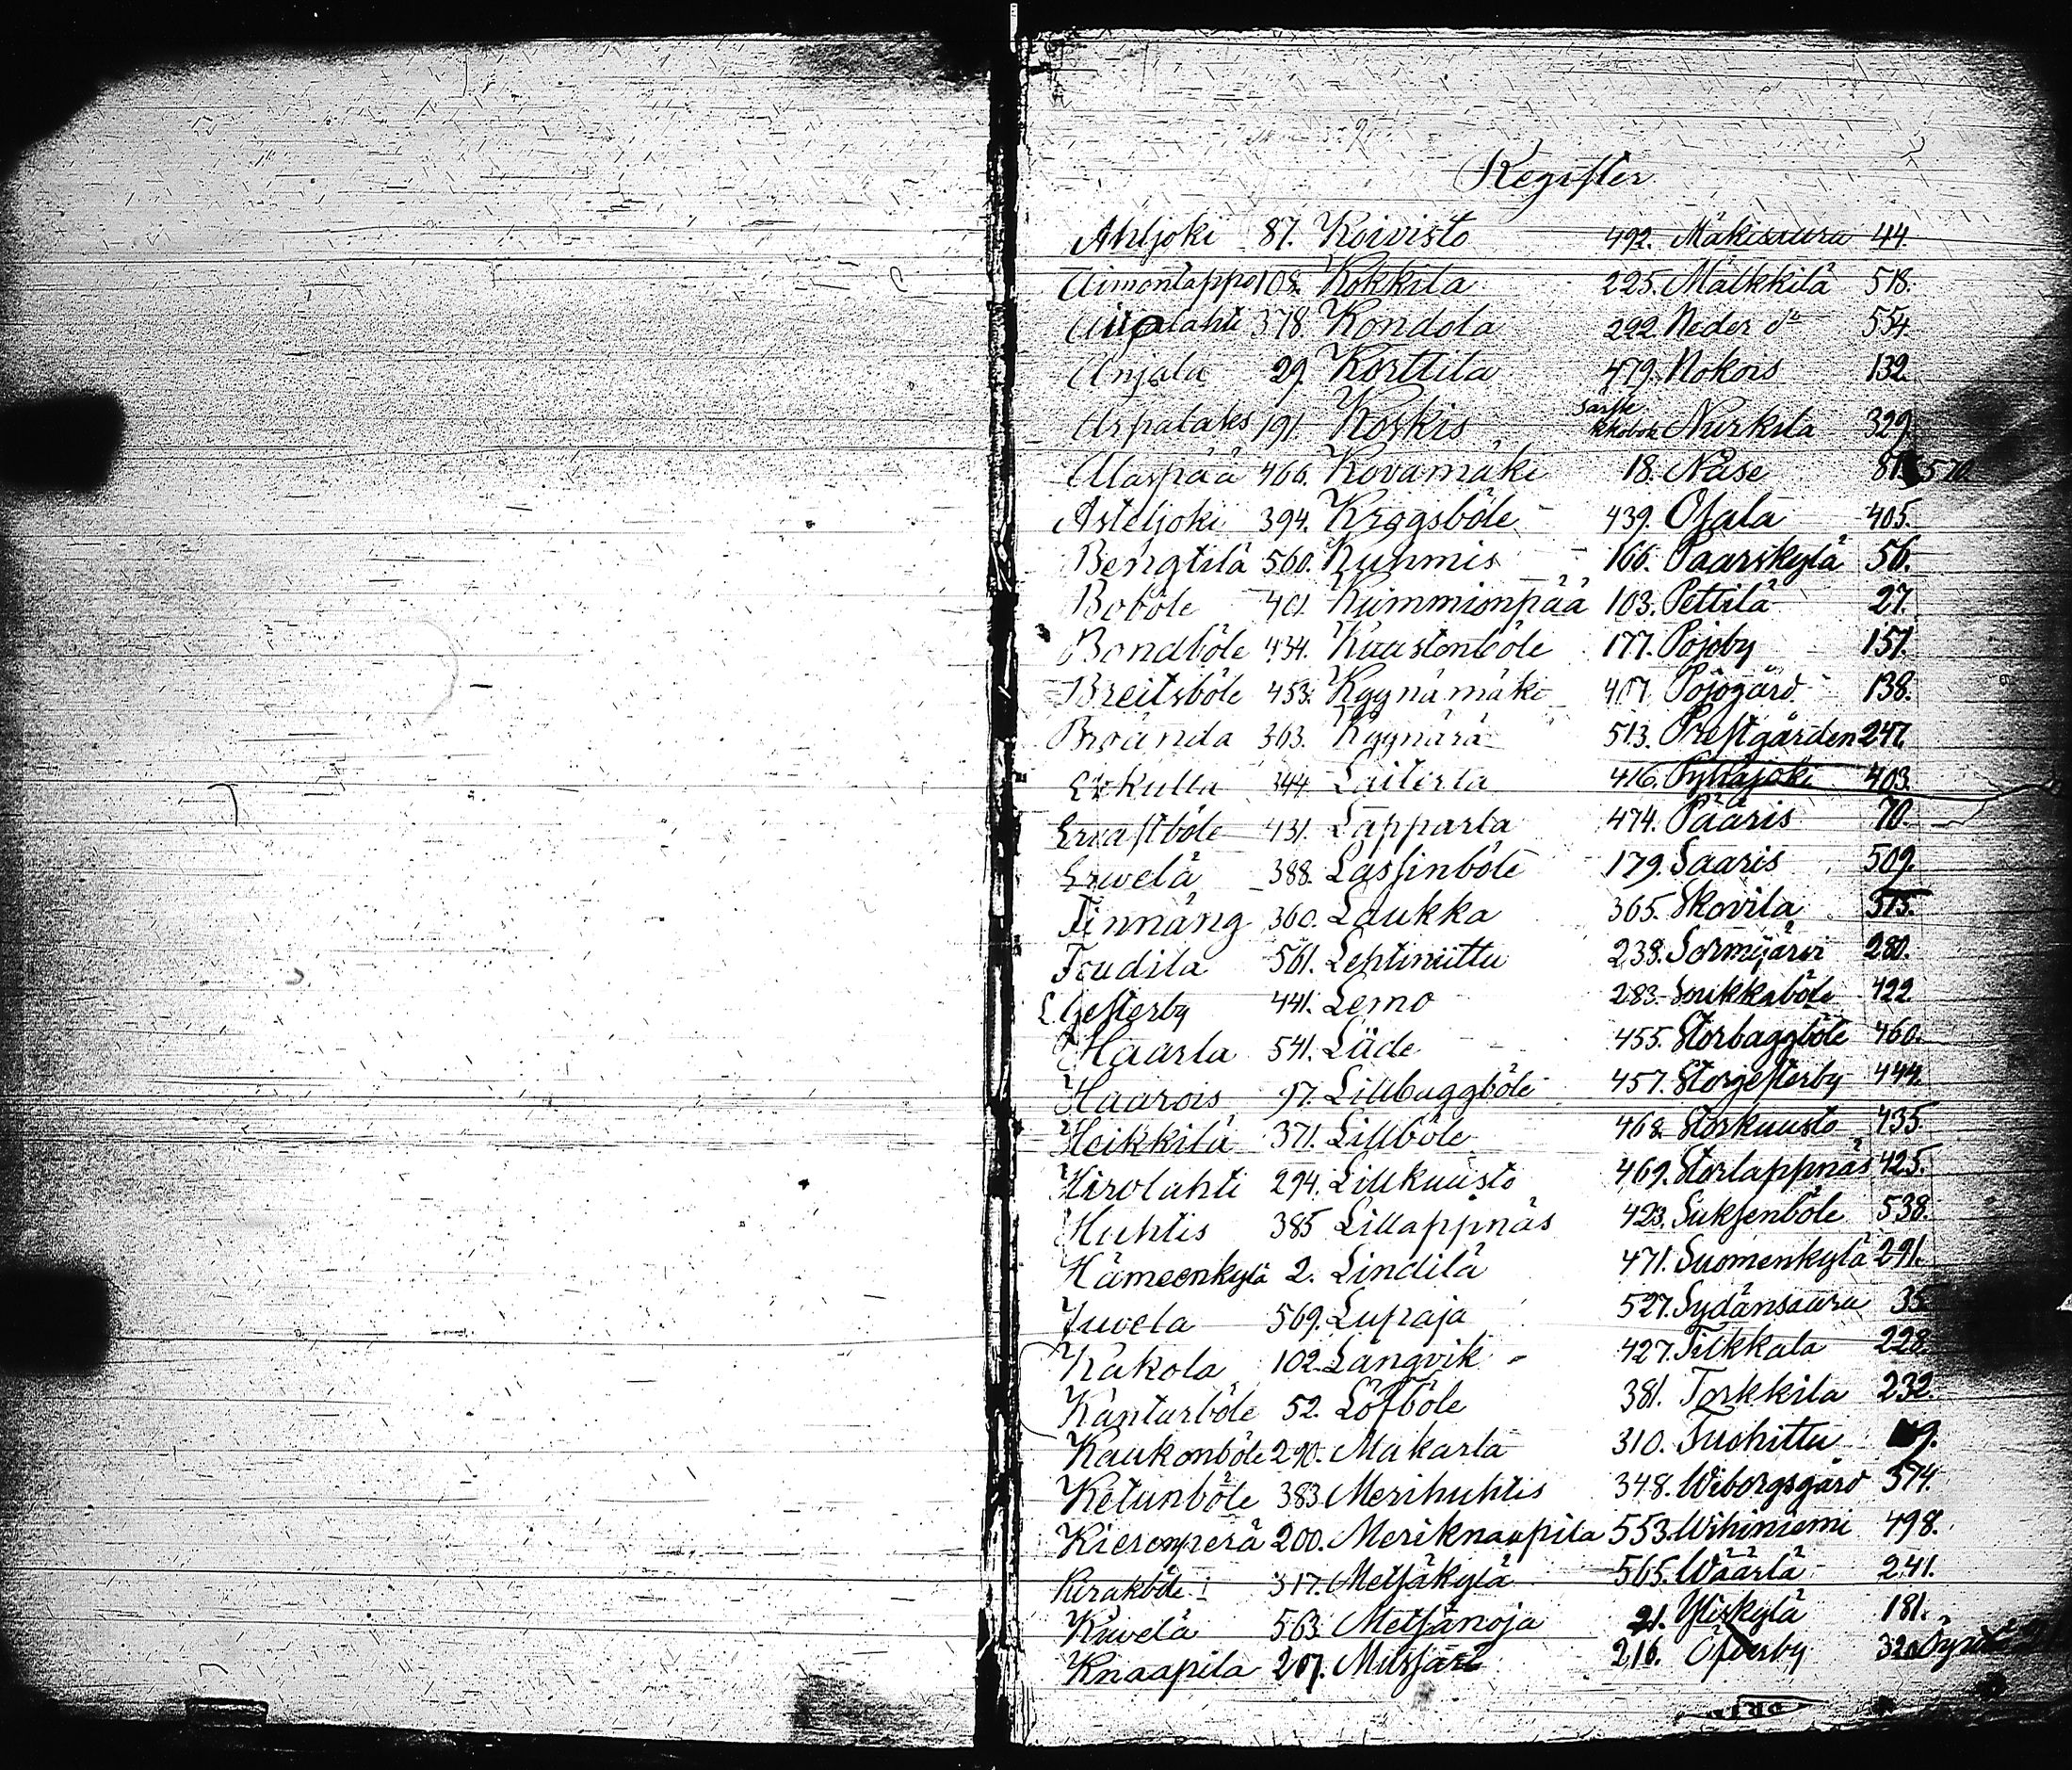 Register
Ahljoki 87. Koivisto 492. Mäkisaura 44.
Aimontappo 108. Kokkila 225. Mälkkilä 518.
378. Kondola 222. Neder do 554.
Anjala 29. Korttila 479. Nokois 132.
Arpalaks 191. Koskis Särsk. Nurkila 329.
Alaspää 466. Kovamäki 18. Näse
Asteljoki 394. Kräggsböle 439. Ojala 405.
Bengtilä 560. Kuhmis 166. Paarskylä 56.
Boböle 401. Kummionpää 103. Pettilä 27.
Bondböle 434. Kuustonböle 177. Pojoby 157.
Breitsböle 453. Kyynämäki 407. Pojogård 138.
363. Kyynärä 513. Prestgården 247.
Erkulla 344. Laiterla 416. Pyhäjoki 403.
Ervastböle 431. Lapparla 474. Pääris 70.
Erwelä 388. Lassinböle 179. Saaris 509.
Finnäng 360. Laukka 365. Skovila 575.
Frudila 561. Lehtiniittu 238. Sormijärvi 280.
L. Gesterby 441. Lemo 283. Soukkaböle 422.
Haarla 541. Liide 455. Storbaggböle 460.
Haarois 97. Lillbaggböle 457. Storgesterby 444.
Heikkilä 371. Lillböle 468. Storkuusto 435.
Hirvlahti 294. Lillkuusto 469. Storlappnäs 425.
Huhtis 385 Lillappnäs 423. Suksenböle 538.
Hämeenkylä 2. Lindilä 471. Suomenkylä 291.
Juvela 569. Lupaja 527. Sydänsaura 35
Kakola 102. Långvik 427. Tikkala 228.
Kantarböle 52. Löfböle 381. Torkkila 232.
Kaukonböle 290. Makarla 310. Tuohittu
Ketunböle 383. Merihuhtis 348. Wiborgsgård 574.
Kiesonperä 200. Meriknaapila 553. Wihiniemi 498.
Kiraköböle 317. Metsäkylä 565. Wäärlä 241.
Kiwelä 563. Metsänoja 21. Yliskylä 181.
Knaapila 207. 216. Öfverby 320